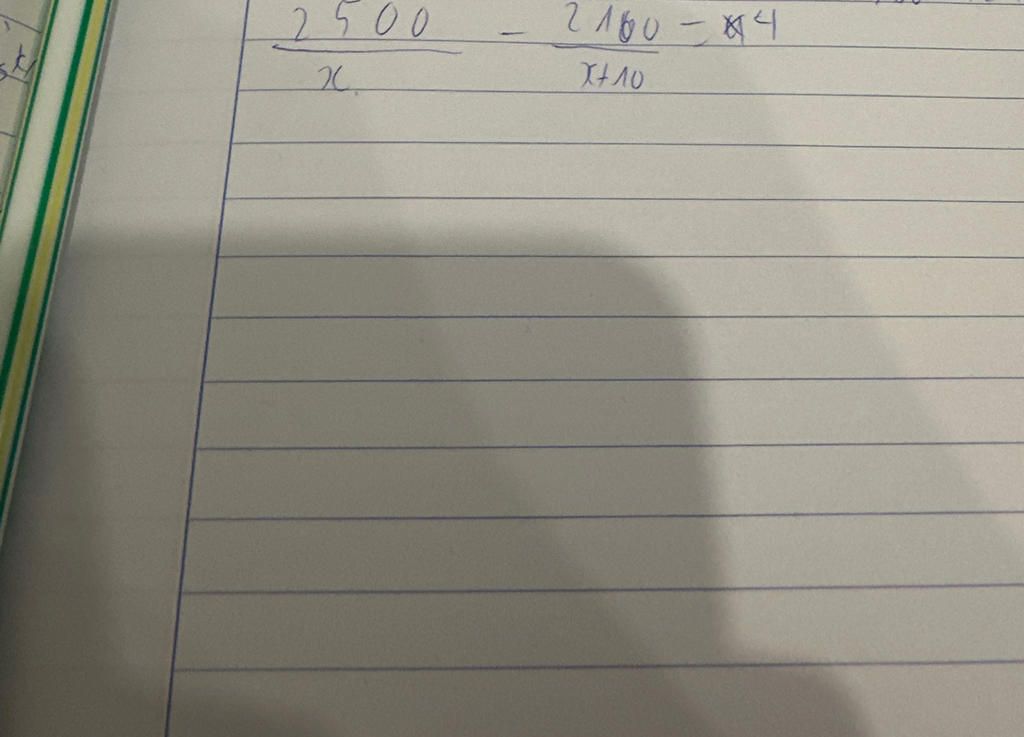 2500 / x - 2160 / x+10 = 4